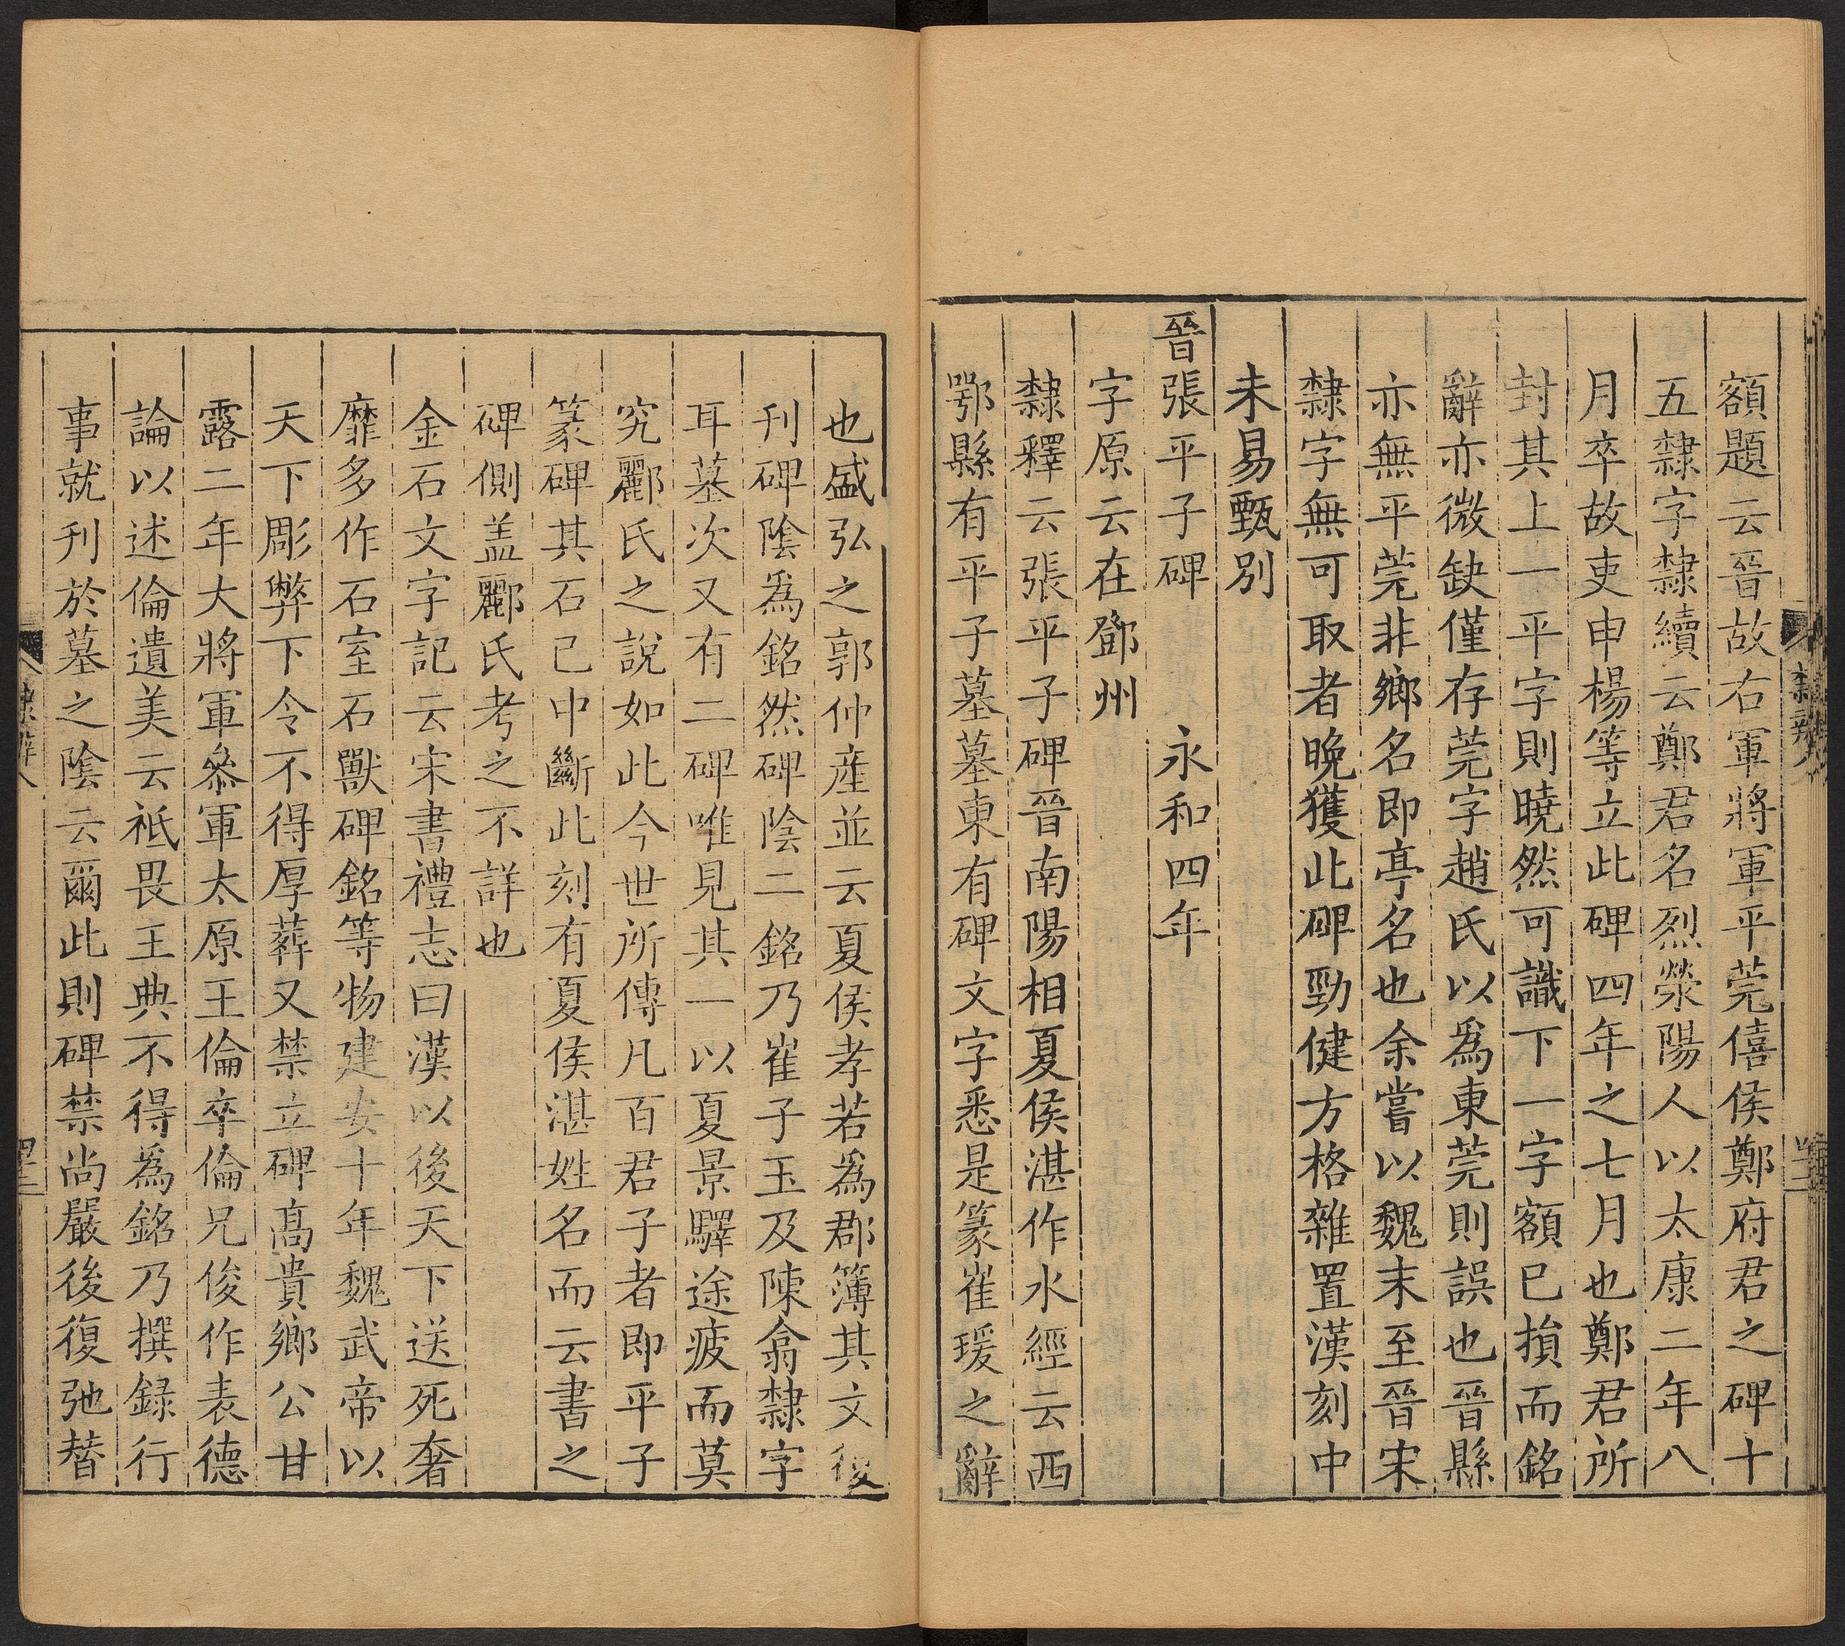 額題云晉故右軍將軍平莞僖侯鄭府君之碑十
五隸字隸續云鄭君名烈滎陽人以太康二年八
月卒故吏申楊等立此碑四年之七月也鄭君所
封其上一平字則曉然可識下一字額已損而銘
辭亦微缺僅存莞字趙氏以為東莞則誤也晉縣
亦無平莞非鄉名即亭名也余嘗以魏末至晉宋
隸字無可取者晚獲此碑勁健方格雜置漢刻中
未易甄別
晉張平子碑 永和四年
字原云在鄧州
隸釋云張平子碑晉南陽相夏侯湛作水經云西
鄂縣有平子墓墓東有碑文字悉是篆崔瑗之辭
也盛弘之郭仲產並云夏侯孝若為郡簿其文復
刊碑陰為銘然碑陰二銘乃崔子玉及陳翕隸字
耳墓次又有二碑唯見其一以夏景驛途疲而莫
究酈氏之說如此今世所傳凡百君子者即平子
篆碑其石已中斷此刻有夏侯湛姓名而云書之
碑側盖酈氏考之不詳也
金石文字記云宋書禮志曰漢以後天下送死奢
靡多作石室石獸碑銘等物建安十年魏武帝以
天下彫弊下令不得厚葬又禁立碑髙貴鄉公甘
露二年大將軍叅軍太原王倫卒倫兄俊作表德
論以述倫遺美云祇畏王典不得為銘乃撰録行
事就刊於墓之陰云爾此則碑禁尚嚴後復弛替